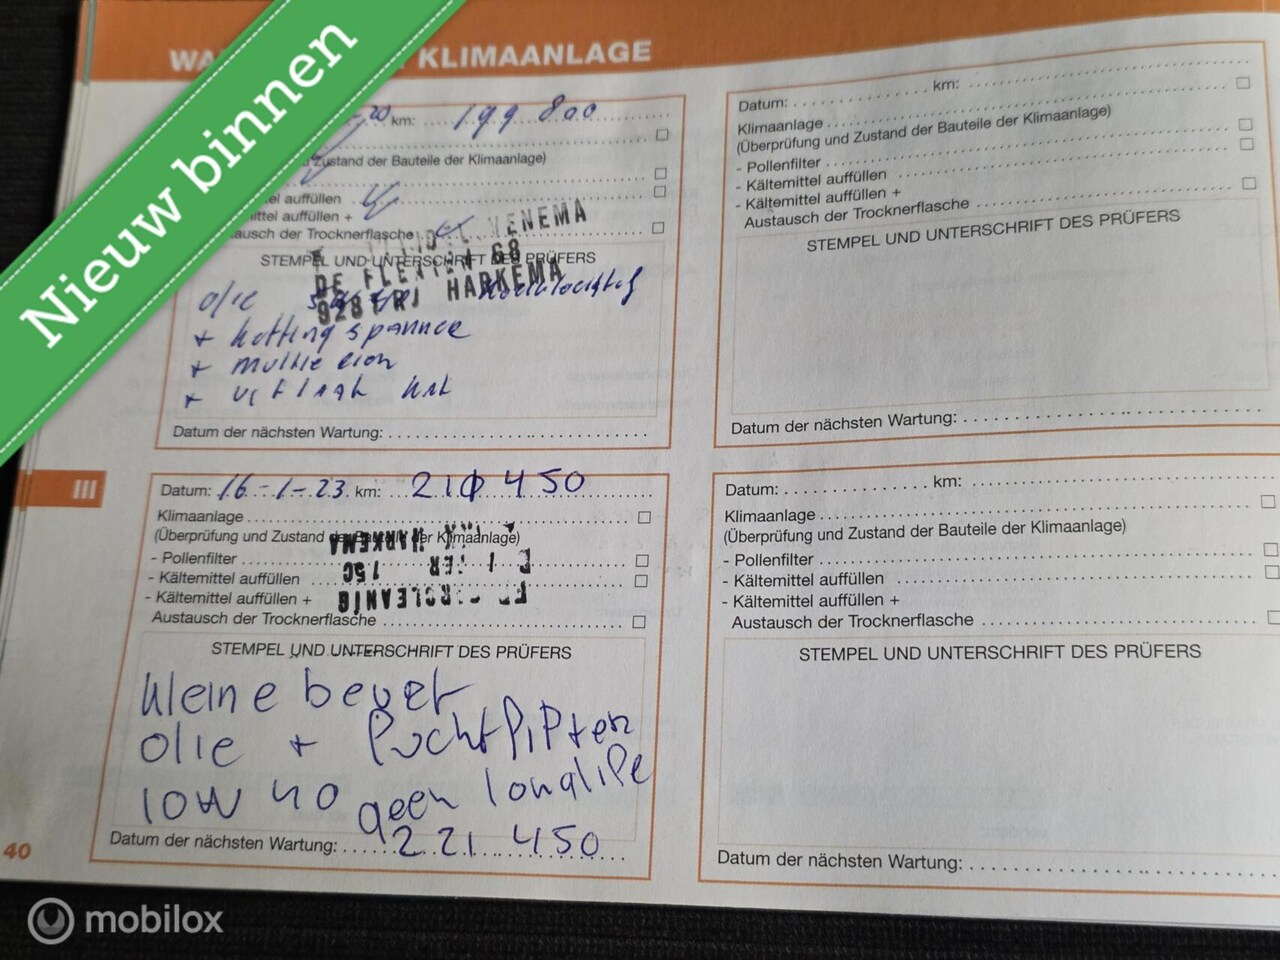 Nieuw binnen
KLIMAANLAGE
km: 199 800
Zustand der Bauteile der Klimaanlage)
auffüllen
auffüllen +
der Trocknerflasche
VENEMA
STEMPEL UND UNTERSCHRIFT DES PRÜFERS
68
HARKEMA
olie
+ ketting spanner
+ multie riem
+
Datum der nächsten Wartung:
Datum: 16-1-23 km: 210 450
Klimaanlage
(Überprüfung und Zustand der Bauteile der Klimaanlage)
HARKEMA
- Pollenfilter
- Kältemittel auffüllen
- Kältemittel auffüllen +
Austausch der Trocknerflasche
STEMPEL UND UNTERSCHRIFT DES PRÜFERS
kleine beurt
olie + luchtfilter
10W 40 geen longlife
Datum der nächsten Wartung: 221 450
Datum: km:
Klimaanlage
(Überprüfung und Zustand der Bauteile der Klimaanlage)
- Pollenfilter
- Kältemittel auffüllen
- Kältemittel auffüllen +
Austausch der Trocknerflasche
STEMPEL UND UNTERSCHRIFT DES PRÜFERS
Datum der nächsten Wartung:
Datum: km:
Klimaanlage
(Überprüfung und Zustand der Bauteile der Klimaanlage)
- Pollenfilter
- Kältemittel auffüllen
- Kältemittel auffüllen +
Austausch der Trocknerflasche
STEMPEL UND UNTERSCHRIFT DES PRÜFERS
Datum der nächsten Wartung:
III
40
mobilox